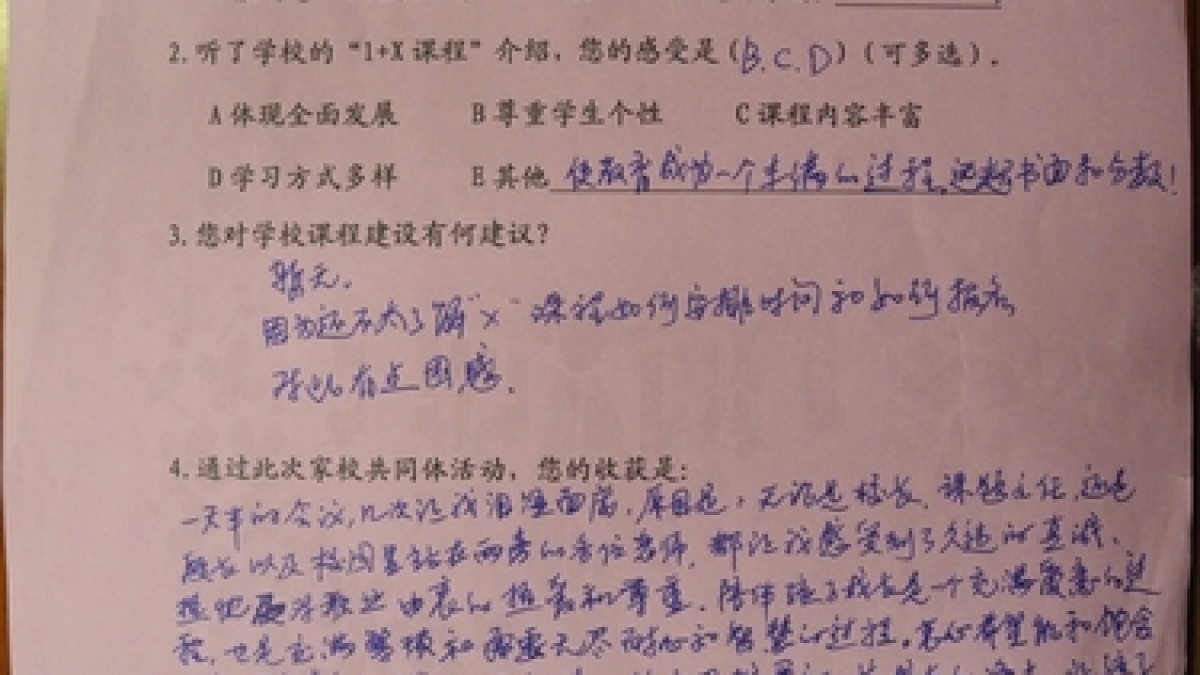 2. 听了学校的“1+X 课程”介绍，您的感受是（B.C.D）（可多选）．
A 体现全面发展 B 尊重学生个性 C 课程内容丰富
D 学习方式多样 E 其他 使教育成为一个幸福的过程，远超书面和分数！
3. 您对学校课程建设有何建议？
暂无．
因为还不太了解“X”课程如何安排时间和如何报名
对此有点困惑．
4. 通过此次家校共同体活动，您的收获是：
一天半的会议，几次让我泪湿面庞，原因是，无论是校长、课题主任，还是
段长以及校园里站在两旁的各位老师，都让我感受到了久违的真诚、
和尊重．陪伴孩子成长是一个充满爱意的过
程，也是充满和需要无尽耐心和智慧的过程．